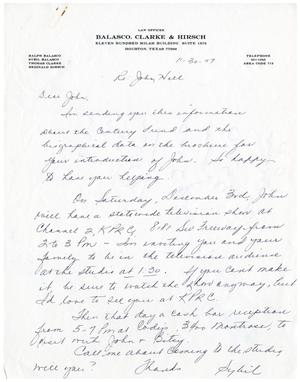 LAW OFFICES
BALASCO, CLARKE & HIRSCH
ELEVEN HUNDRED MILAM BUILDING SUITE
HOUSTON, TEXAS 77002
RALPH BALASCO
SYBIL BALASCO
THOMAS CLARKE
REGINALD HIRSCH
TELEPHONE
AREA CODE 713
11-30-77
Re John Hill
Dear John,
I'm sending you this information
about the Century Fund and the
biographical data on the brochure for
your introduction of John. So happy
to have you helping.
On Saturday, December 3rd, John
will have a statewide television show at
Channel 2, KPRC, 8181 SW Freeway, from
2 to 3 PM - I'm inviting you and your
family to be in the television audience
at the studio at 1:30. If you can't make
it, be sure to watch the show anyway, but
I'd love to see you at KPRC.
Then that day a cash bar reception
from 5-7 PM at Cody's 3400 Montrose, to
visit with John & Betsy.
Call me about coming to the studio
will you? Thanks Sybil